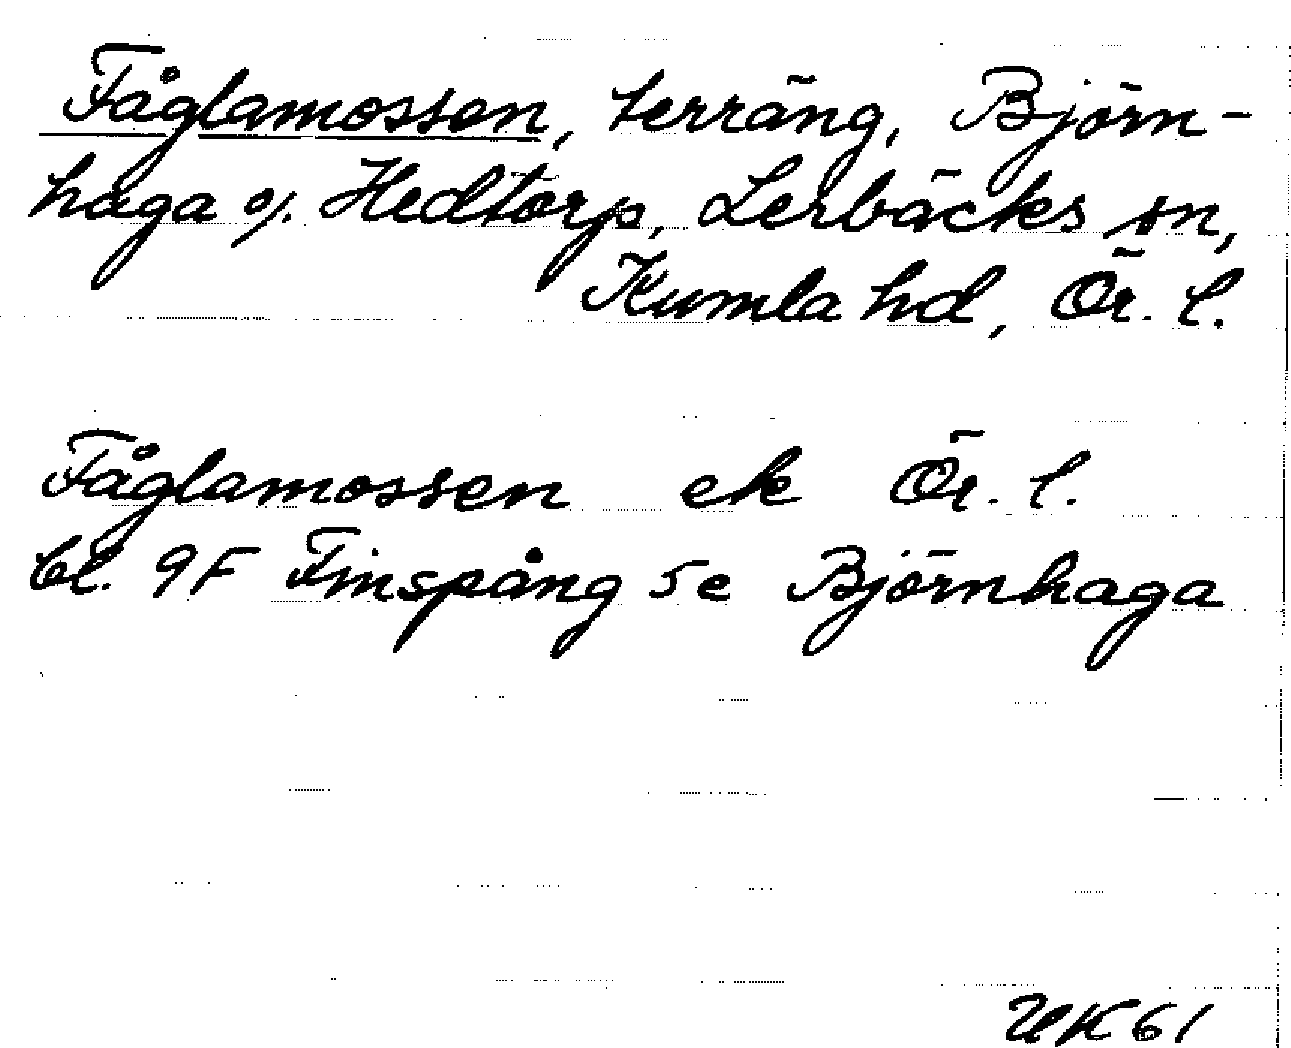 Fåglamossen, terräng, Björn-
haga o/. Hedtorp, Lerbäcks sn,
Kumla hd, Ör. l.
Fåglamossen ek Ör. l.
bl. 9F Finspång 5e Björnhaga
UK61